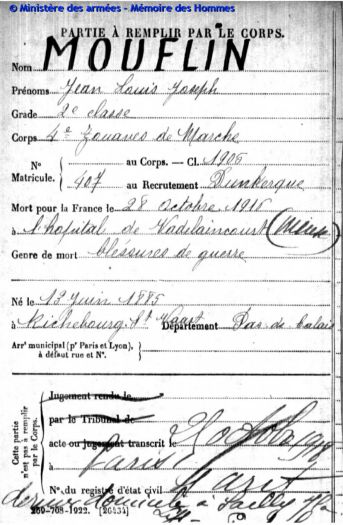 © Ministère des armées - Mémoire des Hommes
PARTIE À REMPLIR PAR LE CORPS.
Nom MOUFLIN
Prénoms Jean Louis Joseph
Grade 2e classe
Corps 4e Zouaves de Marche
N° Matricule. au Corps. — Cl. 1905
407 au Recrutement Dunkerque
Mort pour la France le 28 octobre 1916
à l'hopital de Vadelaincourt (Meuse)
Genre de mort bléssures de guerre
Né le 13 Juin 1885
à Richebourg St Vaast Département Pas de Calais
Arrt municipal (pr Paris et Lyon),
à défaut rue et N°.
Cette partie n'est pas à remplir par le Corps.
Jugement rendu le
par le Tribunal de
acte ou jugement transcrit le
Paris
N° du registre d'état civil
à Sailly
269-708-1922. [26434]